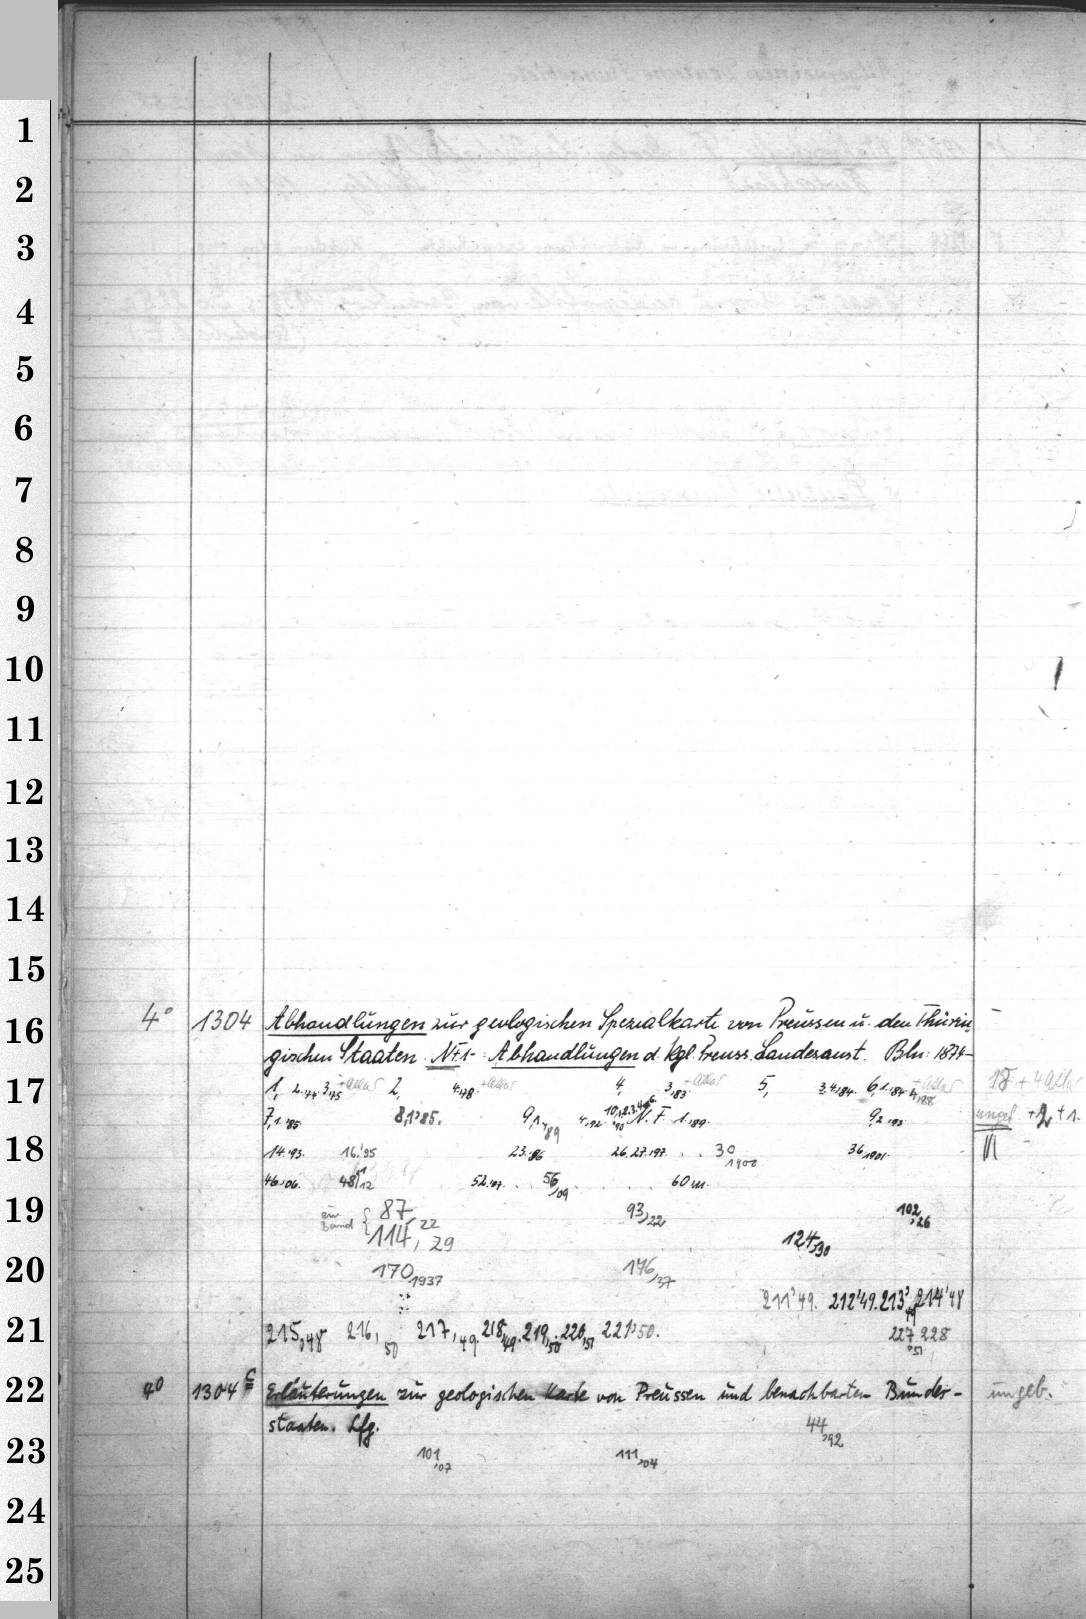 1
2
3
4
5
6
7
8
9
10
11
12
13
14
15
16
17
18
19
20
21
22
23
24
25
4° 1304 Abhandlungen zur geologischen Spezialkarte von Preussen u. den Thürin
gischen Staaten. N.F. 1- : Abhandlungen d. Kgl. Preuss. Landesanst. Bln: 1874-
1, 2.'74 3,'75 +Atlas 2, 4.'78 +Atlas 4, 3,'83 +Atlas 5, 3.4.'84. 6,1.'84 +Atlas
7,1.'85 8,1'85. 9,1,'89 N. F. 1.'89. 9,2.'93
14.'93. 16.'95 23.'96 26.27.'97. 30 1900 36 1901.
46.'06. 48 '12 52.'07. 56,'09 60
ein Band { 87,22 93,22 102,26
114,29 124,30
170,1937 176,37
211'49. 212'49. 213'49 214'48
215,'48 216,50 217,49 218,49. 219,50. 220,51 221'50. 227 228 '51
4° 1304 c Erläuterungen zur geologischen Karte von Preussen und benachbarten Bundes- ungeb.
staaten. Lfg. 44,'92
101,'07 111,'04